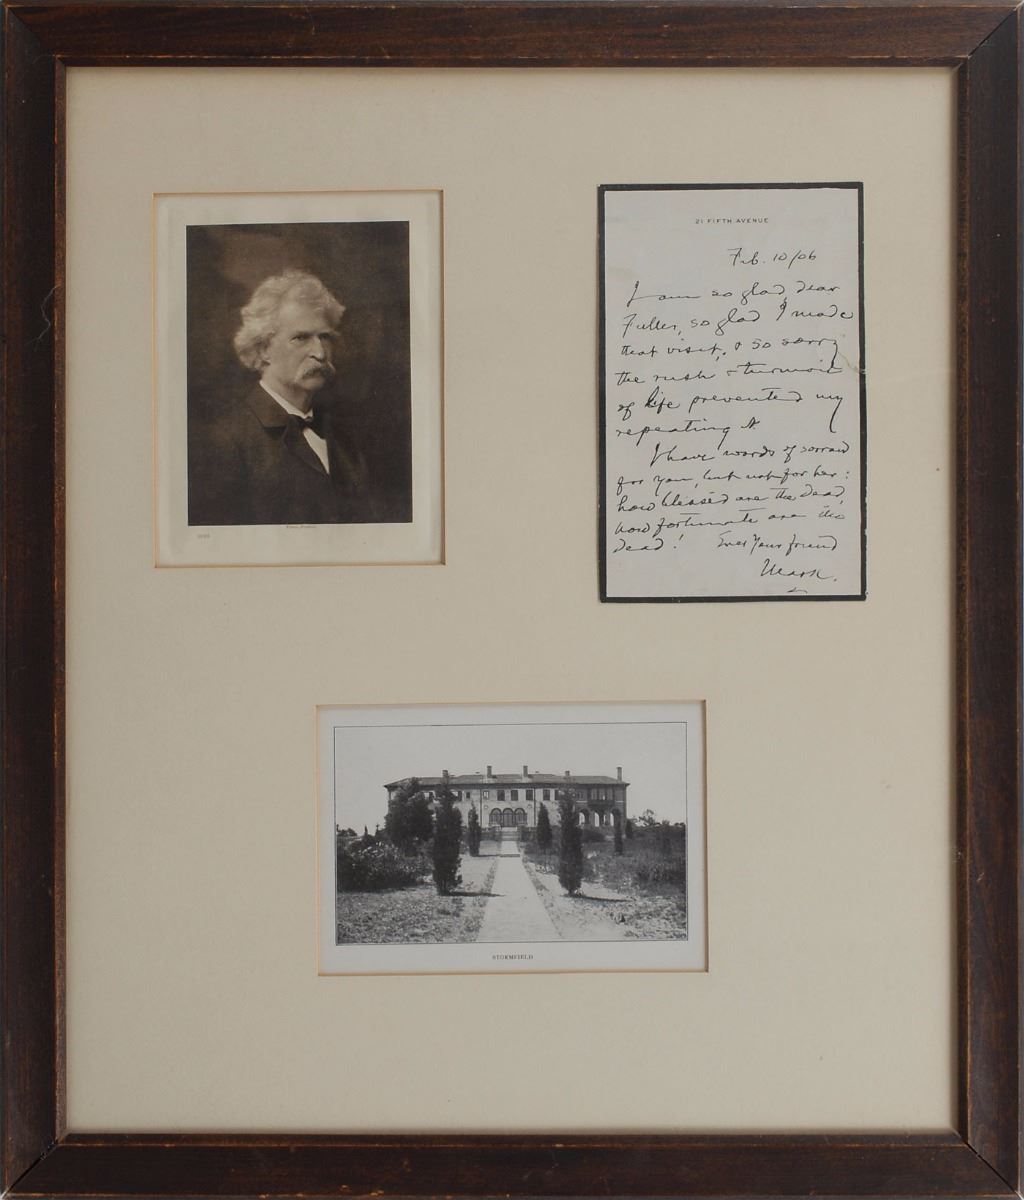 21 FIFTH AVENUE
Feb. 10/06
I am so glad, dear
Fuller, so glad I made
that visit, & so sorry
the rush & turmoil
of life prevented my
repeating it.
I have words of sorrow
for you, but not for her:
how blessed are the dead,
how fortunate are the
dead! Ever Your friend
Mark.
STORMFIELD